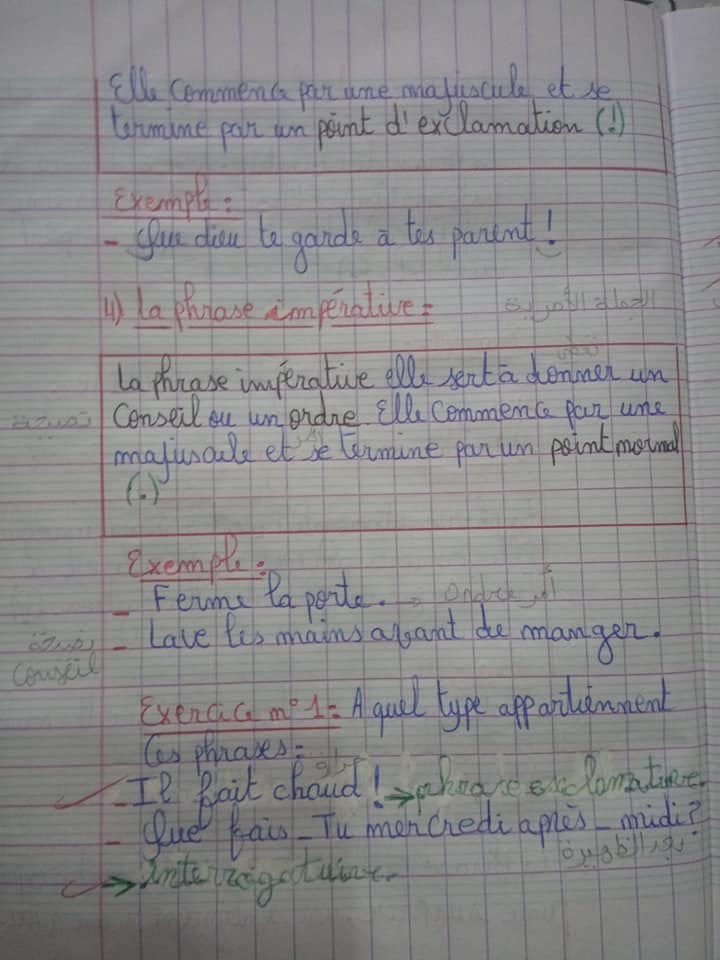 Elle commence par une majuscule et se
termine par un point d'exclamation (!)
Exemple :
- Que dieu te garde à tes parent !
4) La phrase impérative : الجملة الأمرية
La phrase impérative elle sert à donner un
نصيحة conseil ou un ordre. Elle commence par une
majuscule et se termine par un point normal
(.)
Exemple :
- Ferme la porte. → ordre أمر
نصيحة - Lave les mains avant de manger.
conseil
Exercice n° 1 : A quel type appartiennent
ces phrases :
- Il fait chaud ! → phrase exclamative.
- Que fais-Tu mercredi après-midi ?
بعد الظهيرة
→ interrogative.